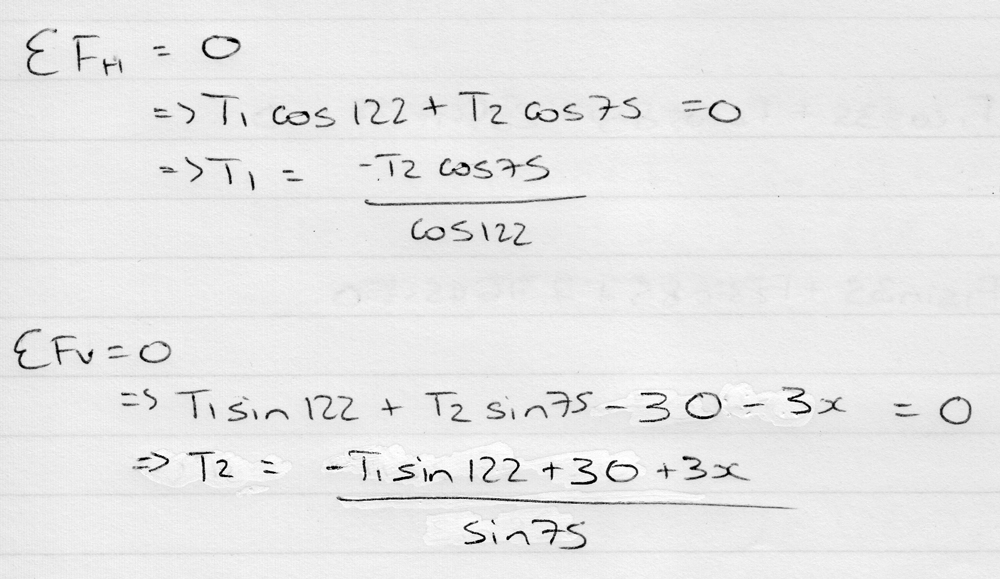 ΣF_H = 0
=> T₁ cos 122 + T2 cos 75 = 0
=> T₁ = -T2 cos 75
cos 122
ΣFv = 0
=> T₁ sin 122 + T2 sin 75 - 30 - 3x = 0
=> T2 = -T₁ sin 122 + 30 + 3x
sin 75